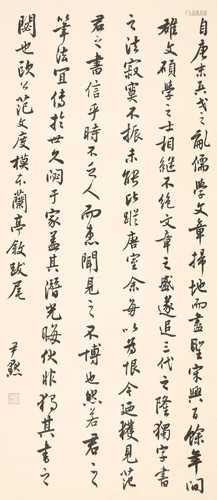 自唐末兵戈之亂儒學文章掃地而盡聖宋興百餘年間
雄文碩學之士相繼不絕文章之盛遂追三代之隆獨字書
之法寂寞不振未能比蹤唐室余每以為恨今迺獲見范
君之書信乎時不乏人而患聞見之不博也然若君之
筆法宜傳於世久閟于家蓋其潛光晦伏非獨其書之
閟也歐公范文度模本蘭亭敘跋尾
尹默